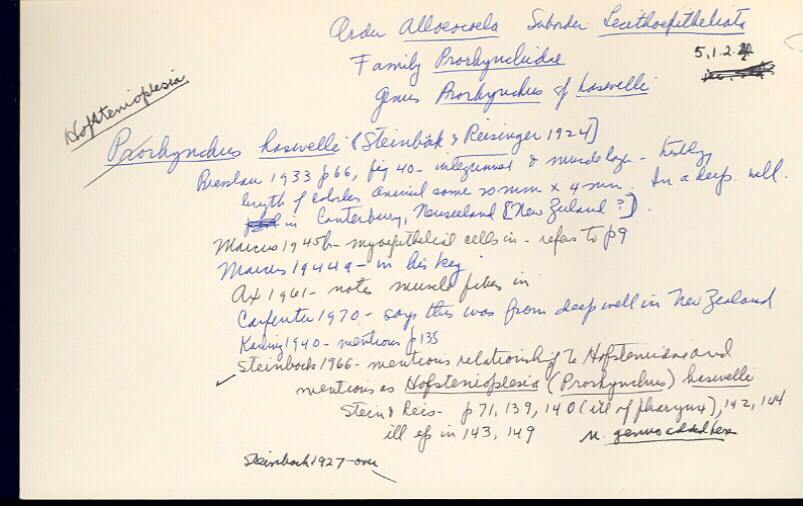 Order Alloeocoela Suborder Lecithoepitheliata
5.1.2.4
Family Prorhynchidae
Genus Prorhynchus of haswelli
Hofstenioplesia
Prorhynchus haswelli (Steinböck & Reisinger 1924)
Bresslau 1933 p66, fig 40 - integument & muscle layer -
length of colorless animal some 20 mm x 4 mm. In a deep well
in Canterbury, Neuseeland [New Zealand?].
Marcus 1945b - myoepithelial cells in - refers to p9
Marcus 1944a - in his key
Ax 1961 - notes muscle fibers in
Carpenter 1970 - says this was from deep well in New Zealand
Karling 1940 - mentions p 135
✓ Steinböck 1966 - mentions relationship to Hofsteniidae and
mentions as Hofstenioplesia (Prorhynchus) haswelli
Stein & Reis - p 71, 139, 140 (ill of pharynx), 142, 144
ill of in 143, 149 n. genus added here
Steinböck 1927 - over